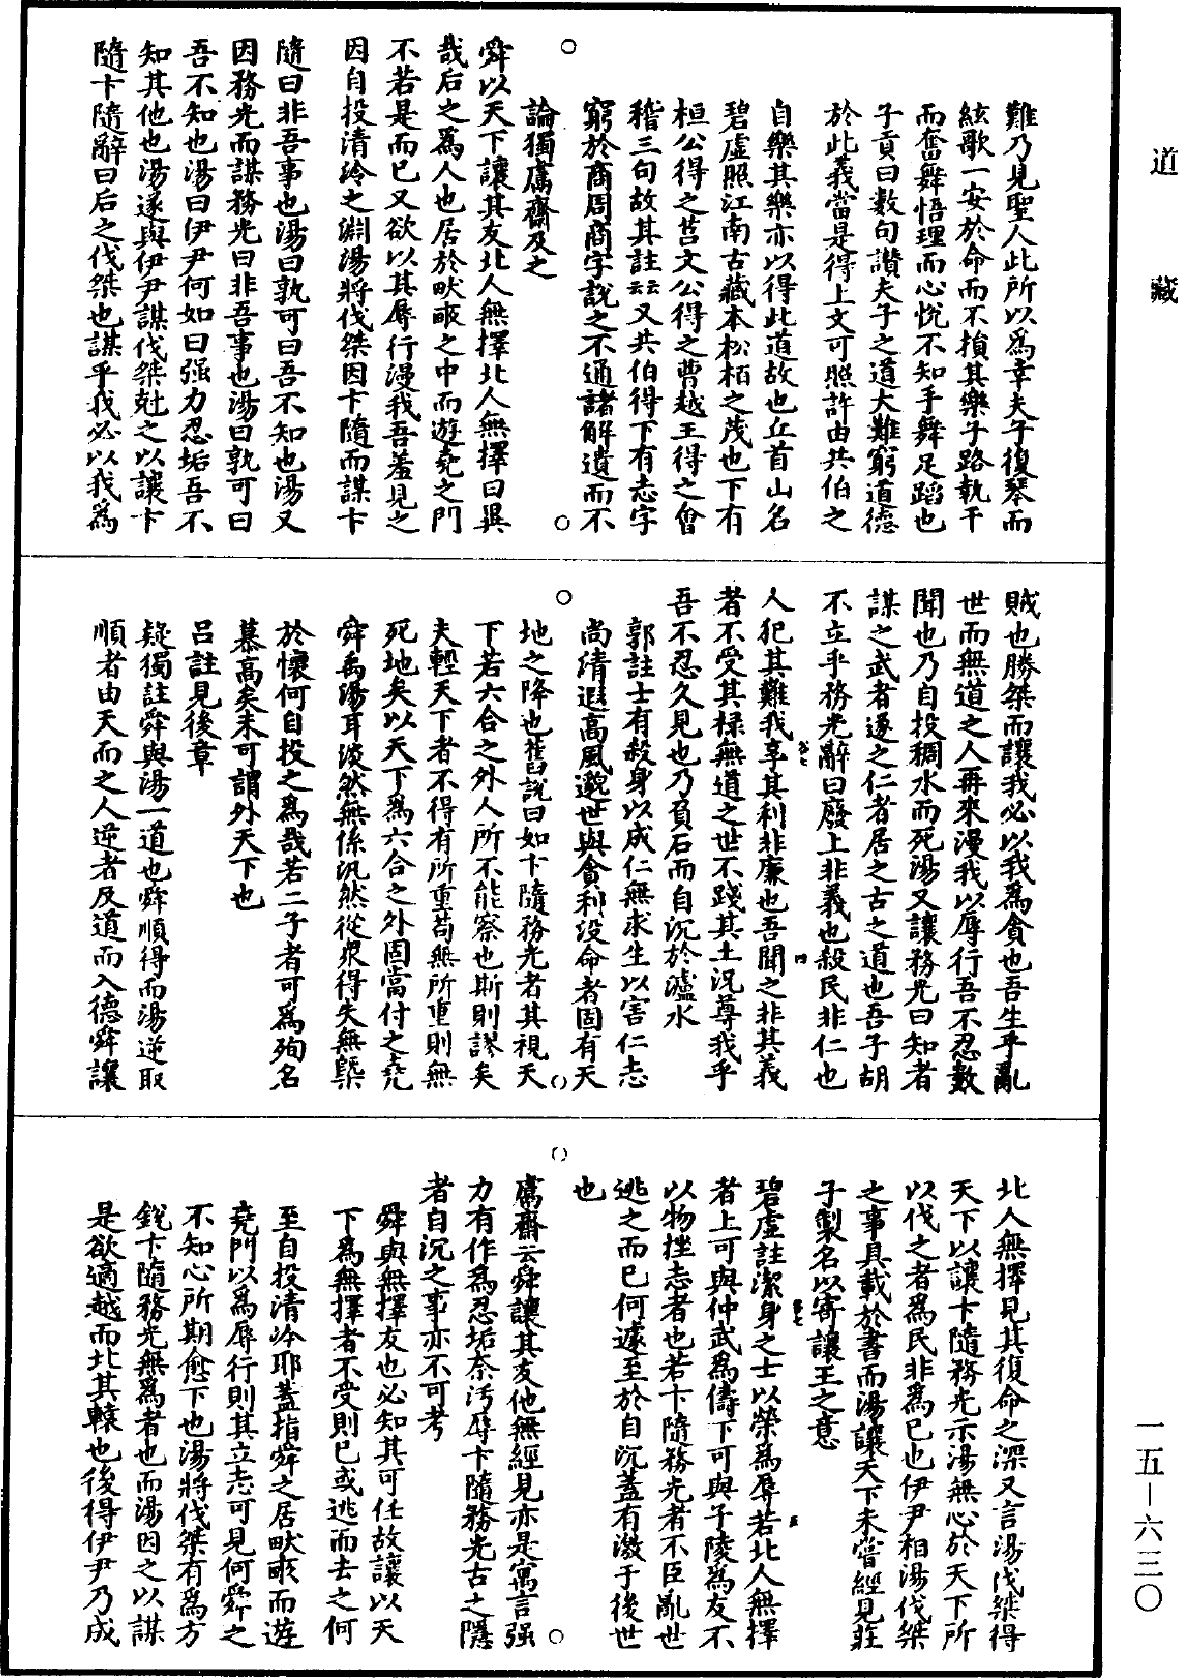 道藏
難乃見聖人此所以為幸夫子復琴而
絃歌一安於命而不損其樂子路執干
而奮舞悟理而心悅不知手舞足蹈也
子貢曰數句讚夫子之道大難窮道德
於此義當是得上文可照許由共伯之
自樂其樂亦以得此道故也丘首山名
碧虛照江南古藏本松栢之茂也下有
桓公得之莒文公得之曹越王得之會
稽三句故其註云云又共伯得下有志字
窮於商周商字說之不通諸解遺而不
論獨鬳齋及之
舜以天下讓其友北人無擇北人無擇曰異
哉后之為人也居於畎畝之中而遊堯之門
不若是而已又欲以其辱行漫我吾羞見之
因自投清泠之淵湯將伐桀因卞隨而謀卞
隨曰非吾事也湯曰孰可曰吾不知也湯又
因務光而謀務光曰非吾事也湯曰孰可曰
吾不知也湯曰伊尹何如曰强力忍垢吾不
知其他也湯遂與伊尹謀伐桀尅之以讓卞
隨卞隨辭曰后之伐桀也謀乎我必以我為
賊也勝桀而讓我必以我為貪也吾生乎亂
世而無道之人再來漫我以辱行吾不忍數
聞也乃自投稠水而死湯又讓務光曰知者
謀之武者遂之仁者居之古之道也吾子胡
不立乎務光辭曰廢上非義也殺民非仁也
人犯其難我享其利非廉也吾聞之非其義
者不受其祿無道之世不踐其土況尊我乎
吾不忍久見也乃負石而自沉於瀘水
郭註士有殺身以成仁無求生以害仁志
尚清遐高風邈世與貪利沒命者固有天
地之降也舊說曰如卞隨務光者其視天
下若六合之外人所不能察也斯則謬矣
夫輕天下者不得有所重苟無所重則無
死地矣以天下為六合之外固當付之堯
舜禹湯耳淡然無係汎然從衆得失無槩
於懷何自投之為哉若二子者可為殉名
慕高矣未可謂外天下也
呂註見後章
疑獨註舜與湯一道也舜順得而湯逆取
順者由天而之人逆者反道而入德舜讓
北人無擇見其復命之深又言湯伐桀得
天下以讓卞隨務光示湯無心於天下所
以伐之者為民非為已也伊尹相湯伐桀
之事具載於書而湯讓天下未嘗經見莊
子製名以寄讓王之意
碧虛註潔身之士以榮為辱若北人無擇
者上可與仲武為儔下可與子陵為友不
以物挫志者也若卞隨務光者不臣亂世
逃之而已何遽至於自沉蓋有激于後世
也
鬳齋云舜讓其友他無經見亦是寓言强
力有作為忍垢奈汚辱卞隨務光古之隱
者自沉之事亦不可考
舜與無擇友也必知其可任故讓以天
下為無擇者不受則已或逃而去之何
至自投清冷耶蓋指舜之居畎畝而遊
堯門以為辱行則其立志可見何舜之
不知心所期愈下也湯將伐桀有為方
銳卞隨務光無為者也而湯因之以謀
是欲適越而北其轅也後得伊尹乃成
一五－六三〇